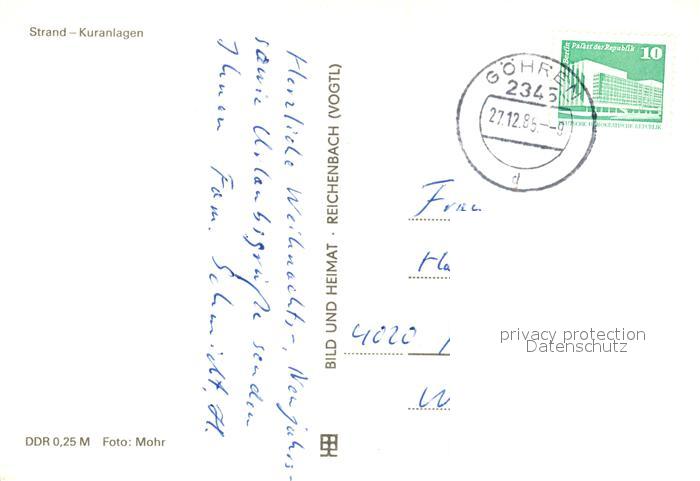 Strand – Kuranlagen
Herzliche Weihnachts-, Neujahrs-
sowie Urlaubsgrüße senden
Ihnen Fam. Schmidt, H.
BILD UND HEIMAT · REICHENBACH (VOGTL)
DDR 0,25 M Foto: Mohr
Berlin Palast der Republik 10
DEUTSCHE DEMOKRATISCHE REPUBLIK
GÖHREN
2345
27.12.85.--9
d
Frau
Ha
4020
W
privacy protection
Datenschutz